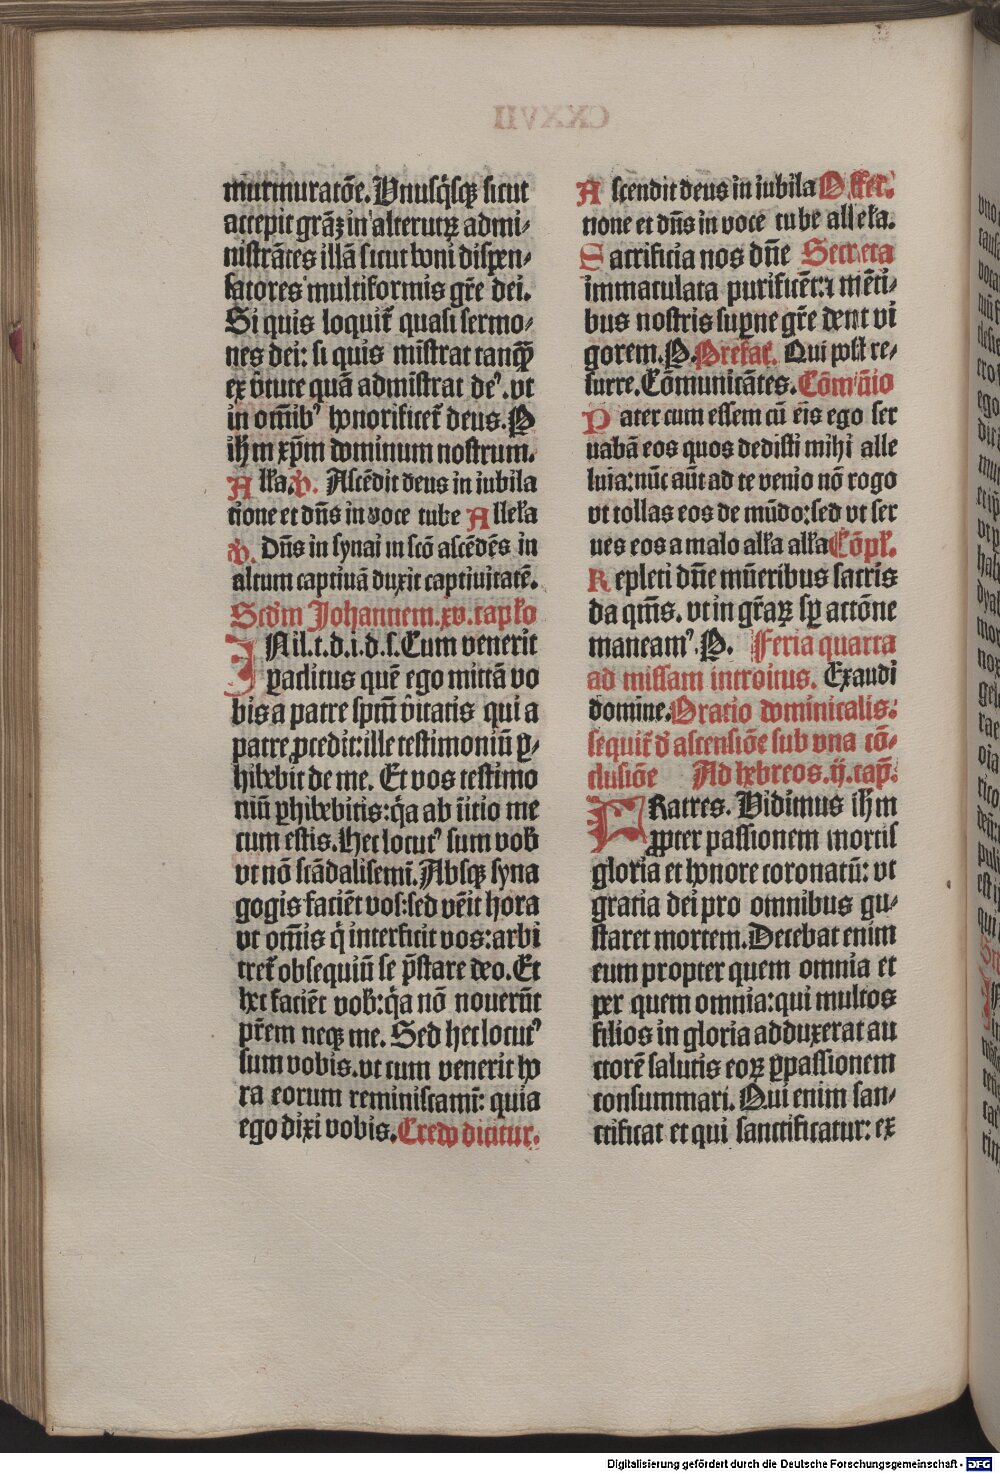 murmuratōe. Vnusq̄sqꝫ sicut
accepit grāꝫ in alterutrꝝ admi-
nistrātes illā sicut boni dispen-
satores multiformis gr̄e dei.
Si quis loquit̄ quasi sermo-
nes dei: si quis mīstrat tanqꝫ̄
ex v̄tute quā admīstrat deꝰ. vt
in om̄ibꝰ honorificet̄ deus. P
ih̄m xp̄m dominum nostrum.
Alł̄a. V. Ascēdit deus in iubila
tione et dn̄s in voce tube Alleła
V. Dn̄s in synai in scō ascēdēs in
altum captiuā duxit captiuitatē.
Scd̄m Johannem. xv. capło
IN il. t. d. i. d. s. Cum venerit
paclitus quē ego mittā vo
bis a patre spm̄ v̄itatis qui a
patre ꝓcedit: ille testimoniū ꝑ-
hibebit de me. Et vos testimo
niū ꝑhibebitis: q̄a ab īitio me
cum estis. Hec locutꝰ sum vob̄
vt nō scādalisemī. Absqꝫ syna
gogis faciēt vos: sed vēit hora
vt om̄is q̄ interficit vos: arbi
tret̄ obsequiū se p̄stare deo. Et
hec faciēt vob̄: q̄a nō nouerūt
pr̄em neqꝫ me. Sed hec locutꝰ
sum vobis. vt cum venerit ho
ra eorum reminiscamī: quia
ego dixi vobis. Credo dicitur.
Ascendit deus in iubila Offer.
tione et dn̄s in voce tube alleła.
Sacrificia nos dn̄e Secreta
immaculata purificēt: ⁊ mēti-
bus nostris supne gr̄e dent vi
gorem. P. Prefat̄. Qui post re-
surre. Cōmunicātes. Cōmūio
Pater cum essem cū eis ego ser
uabā eos quos dedisti mihi alle
luia: nūc aūt ad te venio nō rogo
vt tollas eos de mūdo: sed vt ser
ues eos a malo alł̄a alł̄a Cōpł.
Repleti dn̄e mūeribus sacris
da qm̄s. vt in gr̄aꝝ sꝑ actōne
maneamꝰ. P. Feria quarta
ad missam introitus. Exaudi
domine. Oratio dominicalis:
sequit̄ d̄ ascensiōe sub vna cō-
clusiōe Ad hebreos. ij. cap̄.
FRatres. Vidimus ih̄m
ꝓpter passionem mortis
gloria et honore coronatū: vt
gratia dei pro omnibus gu-
staret mortem. Decebat enim
eum propter quem omnia et
per quem omnia: qui multos
filios in gloria adduxerat au
ctorē salutis eorꝝ ꝑ passionem
consummari. Qui enim san-
ctificat et qui sanctificatur: ex
Digitalisierung gefördert durch die Deutsche Forschungsgemeinschaft - DFG